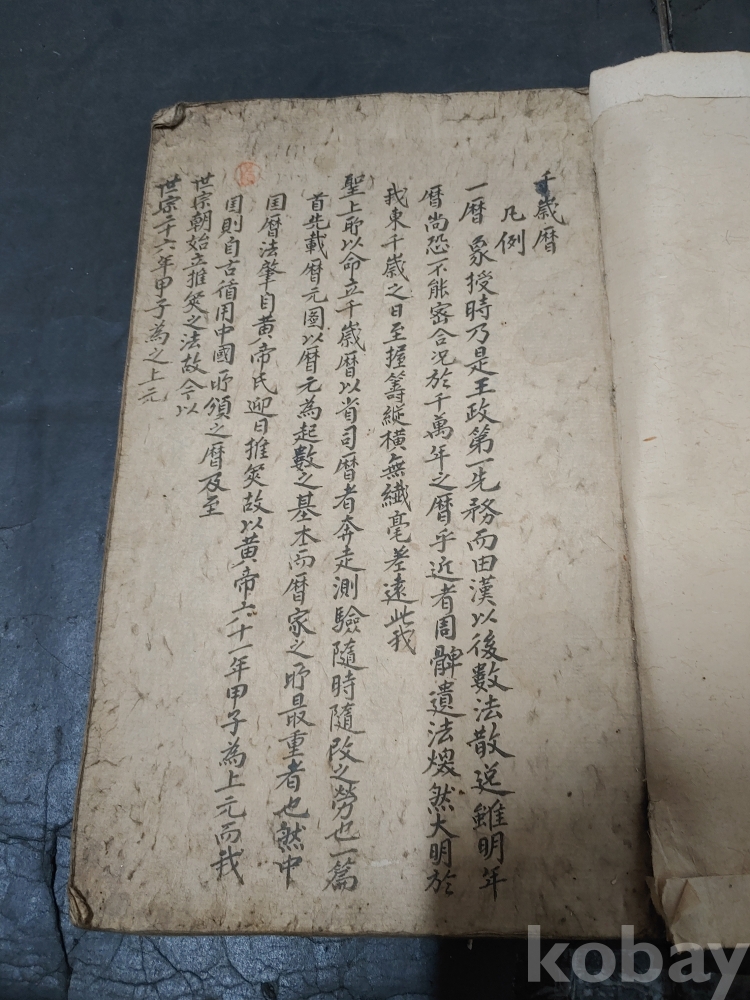 千歲曆
凡例
一曆象授時乃是王政第一先務而由漢以後數法散逸雖明年
曆尚恐不能密合況於千萬年之曆乎近者周髀遺法煥然大明於
我東千歲之日至握籌縱橫無纖毫差違此我
聖上所以命立千歲曆以省司曆者奔走測驗隨時隨改之勞也一篇
首先載曆元圖以曆元為起數之基本而曆家之所最重者也然中
国曆法肇自黃帝氏迎日推筴故以黃帝六十一年甲子為上元而我
国則自古循用中國所頒之曆及至
世宗朝始立推筴之法故今以
世宗二十六年甲子為之上元
kobay